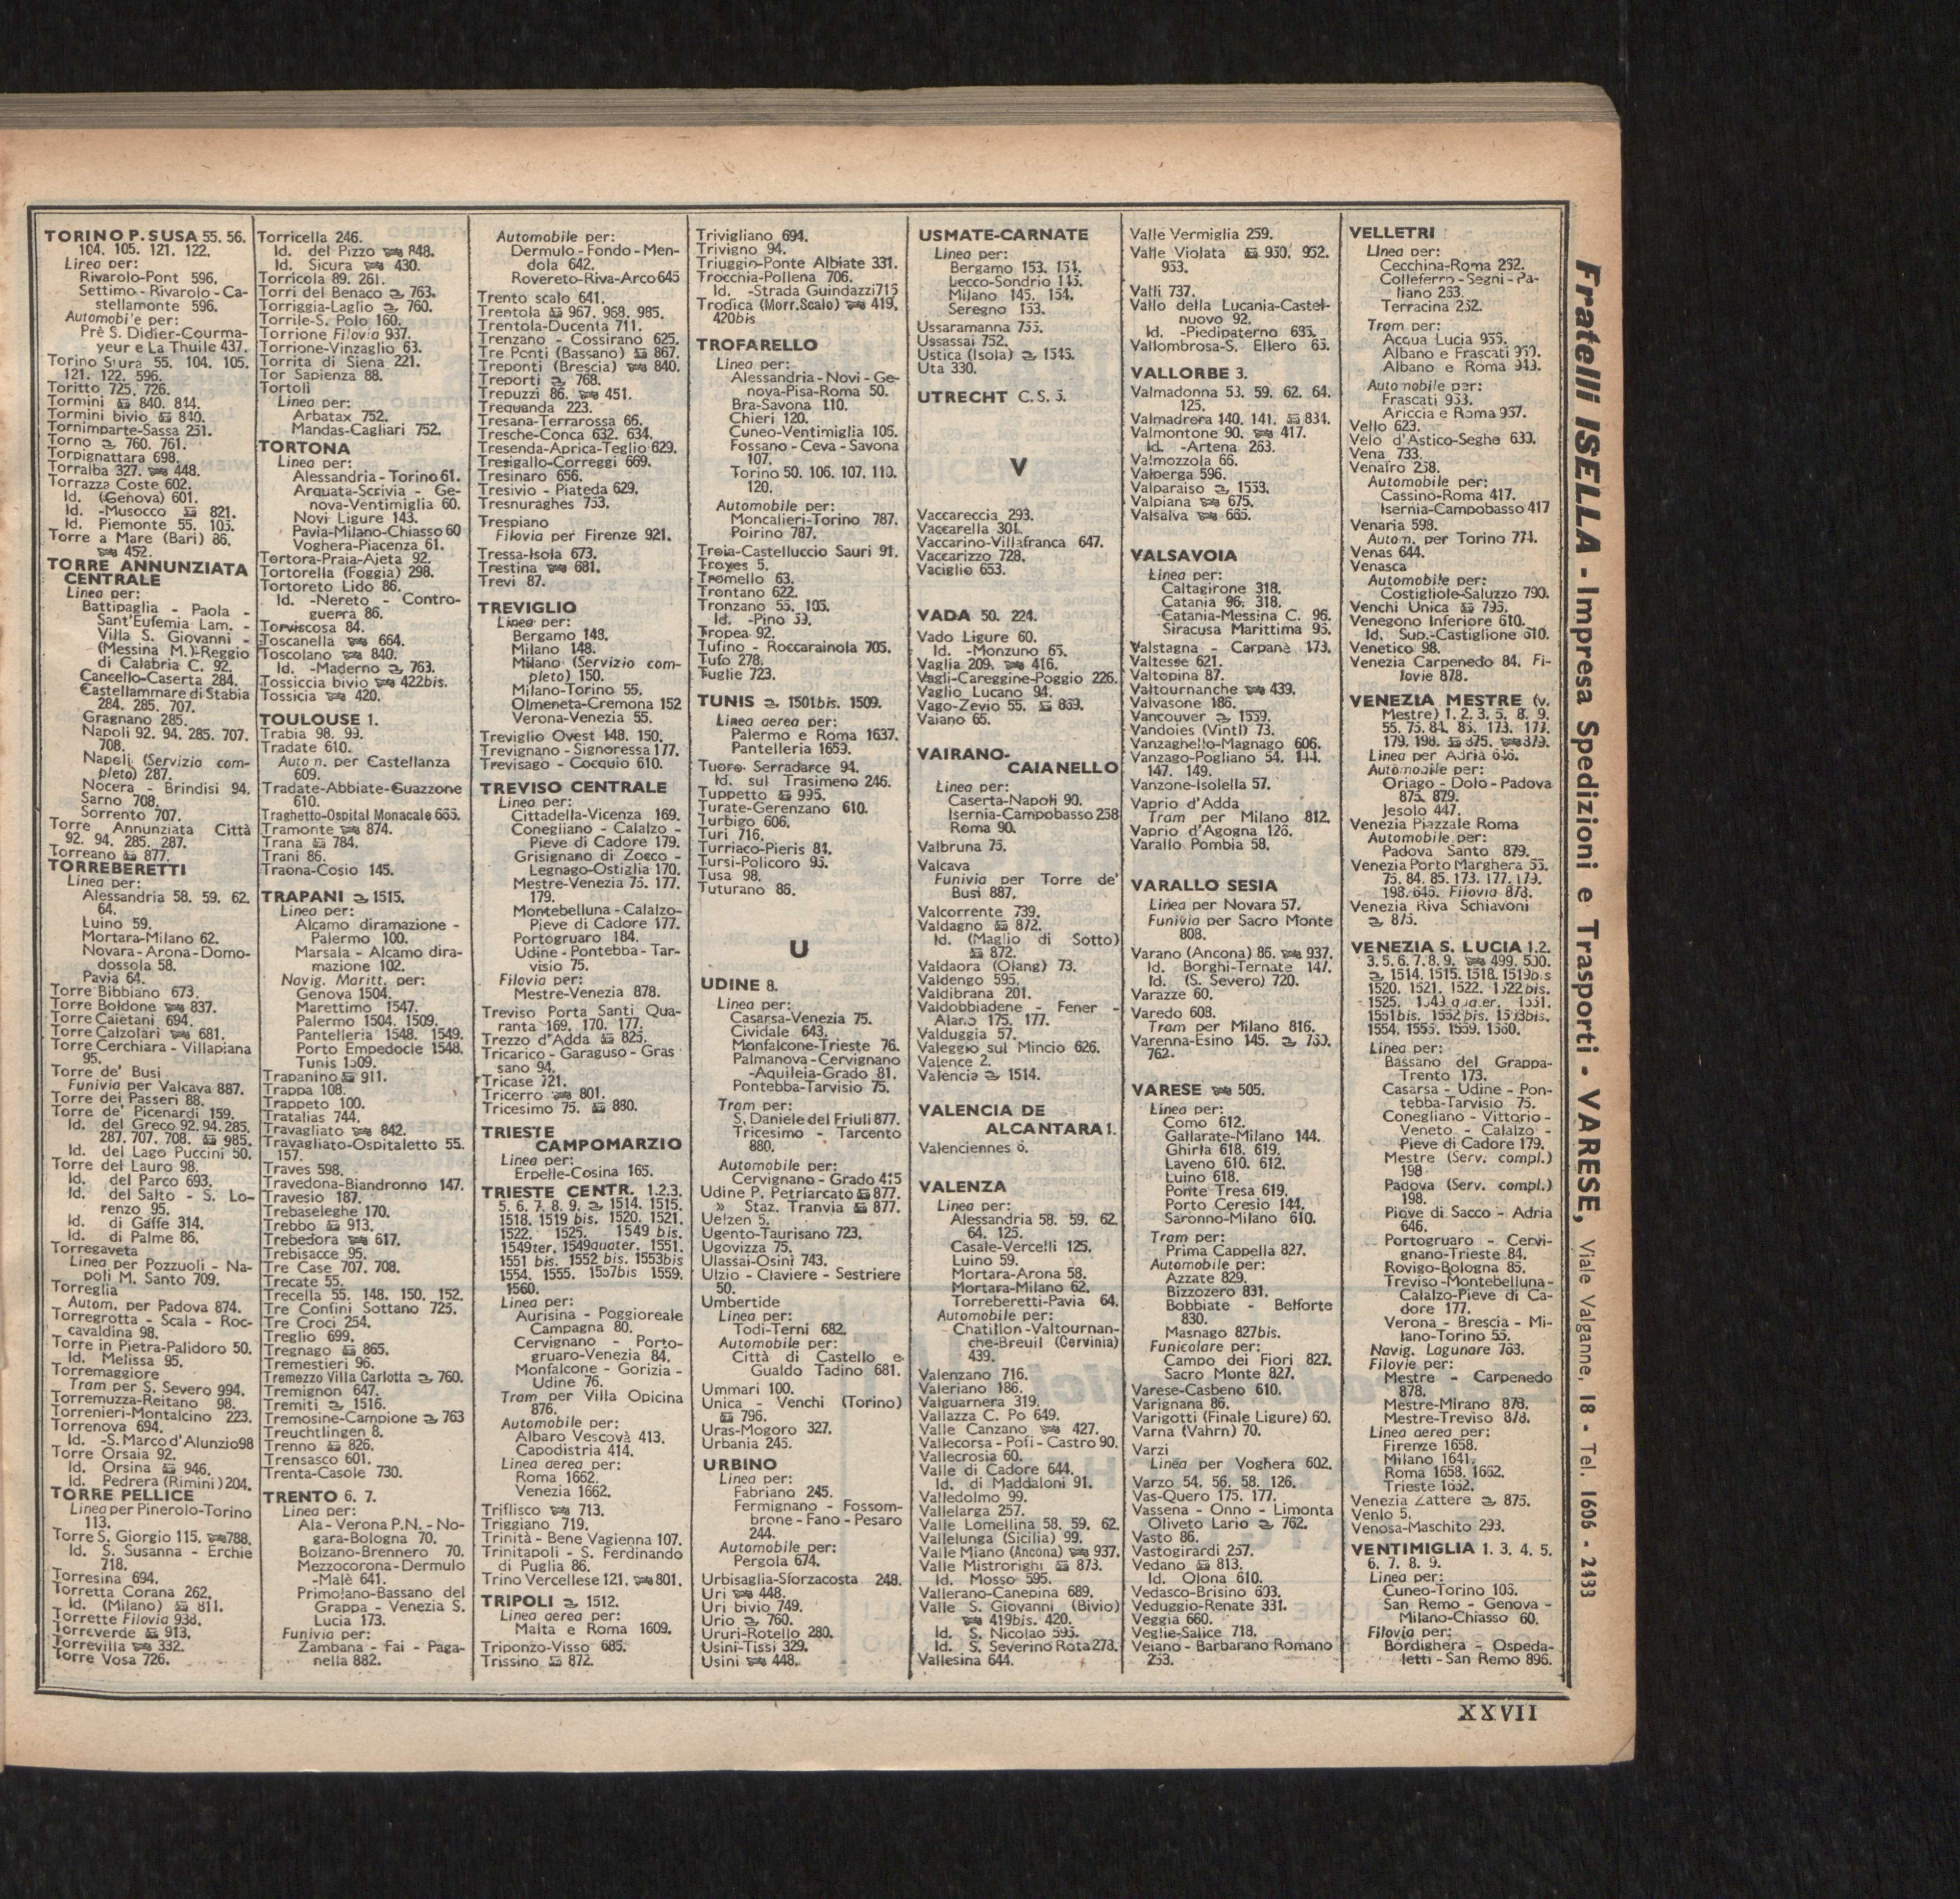 TORINO P. SUSA 55. 56.
104. 105. 121. 122.
Linea per:
Rivarolo-Pont 596.
Settimo - Rivarolo - Ca-
stellamonte 596.
Automobile per:
Prè S. Didier-Courma-
yeur e La Thuile 437.
Torino Stura 55. 104. 105.
121. 122. 596.
Toritto 725. 726.
Tormini 840. 814.
Tormini bivio 840.
Tornimparte-Sassa 251.
Torno 760. 761.
Torpignattara 698.
Torralba 327. 448.
Torrazza Coste 602.
Id. (Genova) 601.
Id. -Musocco 821.
Id. Piemonte 55. 105.
Torre a Mare (Bari) 86.
452.
TORRE ANNUNZIATA
CENTRALE
Linea per:
Battipaglia - Paola -
Sant'Eufemia Lam. -
Villa S. Giovanni -
(Messina M.)-Reggio
di Calabria C. 92.
Cancello-Caserta 284.
Castellammare di Stabia
284. 285. 707.
Gragnano 285.
Napoli 92. 94. 285. 707.
708.
Napoli (Servizio com-
pleto) 287.
Nocera - Brindisi 94.
Sarno 708.
Sorrento 707.
Torre Annunziata Città
92. 94. 285. 287.
Torreano 877.
TORREBERETTI
Linea per:
Alessandria 58. 59. 62.
64.
Luino 59.
Mortara-Milano 62.
Novara - Arona - Domo-
dossola 58.
Pavia 64.
Torre Bibbiano 673.
Torre Boldone 837.
Torre Caietani 694.
Torre Calzolari 681.
Torre Cerchiara - Villapiana
95.
Torre de' Busi
Funivia per Valcava 887.
Torre dei Passeri 88.
Torre de' Picenardi 159.
Id. del Greco 92. 94. 285.
287. 707. 708. 985.
Id. del Lago Puccini 50.
Torre del Lauro 98.
Id. del Parco 693.
Id. del Salto - S. Lo-
renzo 95.
Id. di Gaffe 314.
Id. di Palme 86.
Torregaveta
Linea per Pozzuoli - Na-
poli M. Santo 709.
Torreglia
Autom. per Padova 874.
Torregrotta - Scala - Roc-
cavaldina 98.
Torre in Pietra-Palidoro 50.
Id. Melissa 95.
Torremaggiore
Tram per S. Severo 994.
Torremuzza-Reitano 98.
Torrenieri-Montalcino 223.
Torrenova 694.
Id. -S. Marco d'Alunzio98
Torre Orsaia 92.
Id. Orsina 946.
Id. Pedrera (Rimini) 204.
TORRE PELLICE
Linea per Pinerolo-Torino
113.
Torre S. Giorgio 115. 788.
Id. S. Susanna - Erchie
718.
Torresina 694.
Torretta Corana 262.
Id. (Milano) 811.
Torrette Filovia 938.
Torreverde 913.
Torrevilla 332.
Torre Vosa 726.
Torricella 246.
Id. del Pizzo 848.
Id. Sicura 430.
Torricola 89. 261.
Torri del Benaco 763.
Torriggia-Laglio 760.
Torrile-S. Polo 160.
Torrione Filovia 937.
Torrione-Vinzaglio 63.
Torrita di Siena 221.
Tor Sapienza 88.
Tortolì
Linea per:
Arbatax 752.
Mandas-Cagliari 752.
TORTONA
Linea per:
Alessandria - Torino 61.
Arquata-Scrivia - Ge-
nova-Ventimiglia 60.
Novi Ligure 143.
Pavia-Milano-Chiasso 60
Voghera-Piacenza 61.
Tortora-Praia-Ajeta 92.
Tortorella (Foggia) 298.
Tortoreto Lido 86.
Id. -Nereto - Contro-
guerra 86.
Torviscosa 84.
Toscanella 664.
Toscolano 840.
Id. -Maderno 763.
Tossiccia bivio 422bis.
Tossicia 420.
TOULOUSE 1.
Trabia 98. 99.
Tradate 610.
Auton. per Castellanza
609.
Tradate-Abbiate-Guazzone
610.
Traghetto-Ospital Monacale 665.
Tramonte 874.
Trana 784.
Trani 86.
Traona-Cosio 145.
TRAPANI 1515.
Linea per:
Alcamo diramazione -
Palermo 100.
Marsala - Alcamo dira-
mazione 102.
Navig. Maritt. per:
Genova 1504.
Marettimo 1547.
Palermo 1504. 1509.
Pantelleria 1548. 1549.
Porto Empedocle 1548.
Tunis 1509.
Trapanino 911.
Trappa 108.
Trappeto 100.
Tratalias 744.
Travagliato 842.
Travagliato-Ospitaletto 55.
157.
Traves 598.
Travedona-Biandronno 147.
Travesio 187.
Trebaseleghe 170.
Trebbo 913.
Trebedora 617.
Trebisacce 95.
Tre Case 707. 708.
Trecate 55.
Trecella 55. 148. 150. 152.
Tre Confini Sottano 725.
Tre Croci 254.
Treglio 699.
Tregnago 865.
Tremestieri 96.
Tremezzo Villa Carlotta 760.
Tremignon 647.
Tremiti 1516.
Tremosine-Campione 763
Treuchtlingen 8.
Trenno 826.
Trensasco 601.
Trenta-Casole 730.
TRENTO 6. 7.
Linea per:
Ala - Verona P.N. - No-
gara-Bologna 70.
Bolzano-Brennero 70.
Mezzocorona-Dermulo
-Malè 641.
Primolano-Bassano del
Grappa - Venezia S.
Lucia 173.
Funivia per:
Zambana - Fai - Paga-
nella 882.
Automobile per:
Dermulo - Fondo - Men-
dola 642.
Rovereto-Riva-Arco 645
Trento scalo 641.
Trentola 967. 968. 985.
Trentola-Ducenta 711.
Trenzano - Cossirano 625.
Tre Ponti (Bassano) 867.
Treponti (Brescia) 840.
Treporti 768.
Trepuzzi 86. 451.
Trequanda 223.
Tresana-Terrarossa 66.
Tresche-Conca 632. 634.
Tresenda-Aprica-Teglio 629.
Tresigallo-Correggi 669.
Tresinaro 656.
Tresivio - Piateda 629.
Tresnuraghes 753.
Trespiano
Filovia per Firenze 921.
Tressa-Isola 673.
Trestina 681.
Trevi 87.
TREVIGLIO
Linea per:
Bergamo 148.
Milano 148.
Milano (Servizio com-
pleto) 150.
Milano-Torino 55.
Olmeneta-Cremona 152
Verona-Venezia 55.
Treviglio Ovest 148. 150.
Trevignano - Signoressa 177.
Trevisago - Cocquio 610.
TREVISO CENTRALE
Linea per:
Cittadella-Vicenza 169.
Conegliano - Calalzo -
Pieve di Cadore 179.
Grisignano di Zocco -
Legnago-Ostiglia 170.
Mestre-Venezia 75. 177.
179.
Montebelluna - Calalzo-
Pieve di Cadore 177.
Portogruaro 184.
Udine - Pontebba - Tar-
visio 75.
Filovia per:
Mestre-Venezia 878.
Treviso Porta Santi Qua-
ranta 169. 170. 177.
Trezzo d'Adda 825.
Tricarico - Garaguso - Gras
sano 94.
Tricase 721.
Tricerro 801.
Tricesimo 75. 880.
TRIESTE
CAMPOMARZIO
Linea per:
Erpelle-Cosina 165.
TRIESTE CENTR. 1.2.3.
5. 6. 7. 8. 9. 1514. 1515.
1518. 1519 bis. 1520. 1521.
1522. 1525. 1549 bis.
1549ter. 1549quater. 1551.
1551 bis. 1552 bis. 1553bis
1554. 1555. 1557bis 1559.
1560.
Linea per:
Aurisina - Poggioreale
Campagna 80.
Cervignano - Porto-
gruaro-Venezia 84.
Monfalcone - Gorizia -
Udine 76.
Tram per Villa Opicina
876.
Automobile per:
Albaro Vescovà 413.
Capodistria 414.
Linea aerea per:
Roma 1662.
Venezia 1662.
Triflisco 713.
Triggiano 719.
Trinità - Bene Vagienna 107.
Trinitapoli - S. Ferdinando
di Puglia 86.
Trino Vercellese 121. 801.
TRIPOLI 1512.
Linea aerea per:
Malta e Roma 1609.
Triponzo-Visso 685.
Trissino 872.
Trivigliano 694.
Trivigno 94.
Triuggio-Ponte Albiate 331.
Trocchia-Pollena 706.
Id. -Strada Guindazzi715
Trodica (Morr.Scalo) 419.
420bis
TROFARELLO
Linea per:
Alessandria - Novi - Ge-
nova-Pisa-Roma 50.
Bra-Savona 110.
Chieri 120.
Cuneo-Ventimiglia 105.
Fossano - Ceva - Savona
107.
Torino 50. 106. 107. 110.
120.
Automobile per:
Moncalieri-Torino 787.
Poirino 787.
Troia-Castelluccio Sauri 91.
Troyes 5.
Tromello 63.
Trontano 622.
Tronzano 55. 105.
Id. -Pino 59.
Tropea 92.
Tufino - Roccarainola 705.
Tufo 278.
Tuglie 723.
TUNIS 1501bis. 1509.
Linea aerea per:
Palermo e Roma 1637.
Pantelleria 1659.
Tuoro Serradarce 94.
Id. sul Trasimeno 246.
Tuppetto 995.
Turate-Gerenzano 610.
Turbigo 606.
Turi 716.
Turriaco-Pieris 81.
Tursi-Policoro 95.
Tusa 98.
Tuturano 86.
U
UDINE 8.
Linea per:
Casarsa-Venezia 75.
Cividale 643.
Monfalcone-Trieste 76.
Palmanova - Cervignano
-Aquileia-Grado 81.
Pontebba-Tarvisio 75.
Tram per:
S. Daniele del Friuli 877.
Tricesimo - Tarcento
880.
Automobile per:
Cervignano - Grado 415
Udine P. Petriarcato 877.
» Staz. Tranvia 877.
Uelzen 5.
Ugento-Taurisano 723.
Ugovizza 75.
Ulassai-Osini 743.
Ulzio - Claviere - Sestriere
50.
Umbertide
Linea per:
Todi-Terni 682.
Automobile per:
Città di Castello e
Gualdo Tadino 681.
Ummari 100.
Unica - Venchi (Torino)
796.
Uras-Mogoro 327.
Urbania 245.
URBINO
Linea per:
Fabriano 245.
Fermignano - Fossom-
brone - Fano - Pesaro
244.
Automobile per:
Pergola 674.
Urbisaglia-Sforzacosta 248.
Uri 448.
Uri bivio 749.
Urio 760.
Ururi-Rotello 280.
Usini-Tissi 329.
Usini 448.
USMATE-CARNATE
Linea per:
Bergamo 153. 154.
Lecco-Sondrio 145.
Milano 145. 154.
Seregno 153.
Ussaramanna 755.
Ussassai 752.
Ustica (Isola) 1545.
Uta 330.
UTRECHT C. S. 5.
V
Vaccareccia 293.
Vaccarella 301.
Vaccarino-Villafranca 647.
Vaccarizzo 728.
Vaciglio 653.
VADA 50. 224.
Vado Ligure 60.
Id. -Monzuno 65.
Vaglia 209. 416.
Vagli-Careggine-Poggio 226.
Vaglio Lucano 94.
Vago-Zevio 55. 869.
Vaiano 65.
VAIRANO-
CAIANELLO
Linea per:
Caserta-Napoli 90.
Isernia-Campobasso 258
Roma 90.
Valbruna 75.
Valcava
Funivia per Torre de'
Busi 887.
Valcorrente 739.
Valdagno 872.
Id. (Maglio di Sotto)
872.
Valdaora (Olang) 73.
Valdengo 595.
Valdibrana 201.
Valdobbiadene - Fener -
Alano 175. 177.
Valduggia 57.
Valeggio sul Mincio 626.
Valence 2.
Valencia 1514.
VALENCIA DE
ALCANTARA 1.
Valenciennes 6.
VALENZA
Linea per:
Alessandria 58. 59. 62.
64. 125.
Casale-Vercelli 125.
Luino 59.
Mortara-Arona 58.
Mortara-Milano 62.
Torreberetti-Pavia 64.
Automobile per:
Chatillon -Valtournan-
che-Breuil (Cervinia)
439.
Valenzano 716.
Valeriano 186.
Valguarnera 319.
Vallazza C. Po 649.
Valle Canzano 427.
Vallecorsa - Pofi - Castro 90.
Vallecrosia 60.
Valle di Cadore 644.
Id. di Maddaloni 91.
Valledolmo 99.
Vallelarga 257.
Valle Lomellina 58. 59. 62.
Vallelunga (Sicilia) 99.
Valle Miano (Ancona) 937.
Valle Mistrorighi 873.
Id. Mosso 595.
Vallerano-Canepina 689.
Valle S. Giovanni (Bivio)
419bis. 420.
Id. S. Nicolao 595.
Id. S. Severino Rota 273.
Vallesina 644.
Valle Vermiglia 259.
Valle Violata 950. 952.
953.
Valli 737.
Vallo della Lucania-Castel-
nuovo 92.
Id. -Piedipaterno 685.
Vallombrosa-S. Ellero 65.
VALLORBE 3.
Valmadonna 53. 59. 62. 64.
125.
Valmadrera 140. 141. 834.
Valmontone 90. 417.
Id. -Artena 263.
Valmozzola 66.
Valperga 596.
Valparaiso 1553.
Valpiana 675.
Valsalva 665.
VALSAVOIA
Linea per:
Caltagirone 318.
Catania 96. 318.
Catania-Messina C. 96.
Siracusa Marittima 95.
Valstagna - Carpanè 173.
Valtesse 621.
Valtopina 87.
Valtournanche 439.
Valvasone 186.
Vancouver 1559.
Vandoies (Vintl) 73.
Vanzaghello-Magnago 606.
Vanzago-Pogliano 54. 144.
147. 149.
Vanzone-Isolella 57.
Vaprio d'Adda
Tram per Milano 812.
Vaprio d'Agogna 126.
Varallo Pombia 58.
VARALLO SESIA
Linea per Novara 57.
Funivia per Sacro Monte
808.
Varano (Ancona) 86. 937.
Id. Borghi-Ternate 147.
Id. (S. Severo) 720.
Varazze 60.
Varedo 608.
Tram per Milano 816.
Varenna-Esino 145. 760.
762.
VARESE 505.
Linea per:
Como 612.
Gallarate-Milano 144.
Ghirla 618. 619.
Laveno 610. 612.
Luino 618.
Ponte Tresa 619.
Porto Ceresio 144.
Saronno-Milano 610.
Tram per:
Prima Cappella 827.
Automobile per:
Azzate 829.
Bizzozero 831.
Bobbiate - Belforte
830.
Masnago 827bis.
Funicolare per:
Campo dei Fiori 827.
Sacro Monte 827.
Varese-Casbeno 610.
Varignana 86.
Varigotti (Finale Ligure) 60.
Varna (Vahrn) 70.
Varzi
Linea per Voghera 602.
Varzo 54. 56. 58. 126.
Vas-Quero 175. 177.
Vassena - Onno - Limonta
Oliveto Lario 762.
Vasto 86.
Vastogirardi 257.
Vedano 813.
Id. Olona 610.
Vedasco-Brisino 603.
Veduggio-Renate 331.
Veggia 660.
Veglie-Salice 718.
Veiano - Barbarano Romano
253.
VELLETRI
Linea per:
Cecchina-Roma 252.
Colleferro - Segni - Pa-
liano 263.
Terracina 252.
Tram per:
Acqua Lucia 955.
Albano e Frascati 950.
Albano e Roma 943.
Automobile per:
Frascati 953.
Ariccia e Roma 957.
Vello 623.
Velo d'Astico-Seghe 630.
Vena 733.
Venafro 258.
Automobile per:
Cassino-Roma 417.
Isernia-Campobasso 417
Venaria 598.
Autom. per Torino 774.
Venas 644.
Venasca
Automobile per:
Costigliole-Saluzzo 790.
Venchi Unica 795.
Venegono Inferiore 610.
Id. Sup.-Castiglione 610.
Venetico 98.
Venezia Carpenedo 84. Fi-
lovie 878.
VENEZIA MESTRE (v.
Mestre) 1. 2. 3. 5. 8. 9.
55. 75. 84. 85. 173. 177.
179. 198. 875. 879.
Linea per Adria 646.
Automobile per:
Oriago - Dolo - Padova
875. 879.
Jesolo 447.
Venezia Piazzale Roma
Automobile per:
Padova Santo 879.
Venezia Porto Marghera 55.
75. 84. 85. 173. 177. 179.
198. 646. Filovia 878.
Venezia Riva Schiavoni
875.
VENEZIA S. LUCIA 1.2.
3.5.6.7.8.9. 499. 500.
1514. 1515. 1518. 1519bis
1520. 1521. 1522. 1522bis.
1525. 1549quater. 1551.
1551bis. 1552bis. 1553bis.
1554. 1555. 1559. 1560.
Linea per:
Bassano del Grappa-
Trento 173.
Casarsa - Udine - Pon-
tebba-Tarvisio 75.
Conegliano - Vittorio -
Veneto - Calalzo -
Pieve di Cadore 179.
Mestre (Serv. compl.)
198
Padova (Serv. compl.)
198.
Piove di Sacco - Adria
646.
Portogruaro - Cervi-
gnano-Trieste 84.
Rovigo-Bologna 85.
Treviso-Montebelluna-
Calalzo-Pieve di Ca-
dore 177.
Verona - Brescia - Mi-
lano-Torino 55.
Navig. Lagunare 768.
Filovie per:
Mestre - Carpenedo
878.
Mestre-Mirano 878.
Mestre-Treviso 878.
Linea aerea per:
Firenze 1658.
Milano 1641.
Roma 1658. 1662.
Trieste 1662.
Venezia Zattere 875.
Venlo 5.
Venosa-Maschito 293.
VENTIMIGLIA 1. 3. 4. 5.
6. 7. 8. 9.
Linea per:
Cuneo-Torino 105.
San Remo - Genova -
Milano-Chiasso 60.
Filovia per:
Bordighera - Ospeda-
letti - San Remo 896.
Fratelli ISELLA - Impresa Spedizioni e Trasporti - VARESE, Viale Valganne, 18 - Tel. 1606 - 2433
XXVII